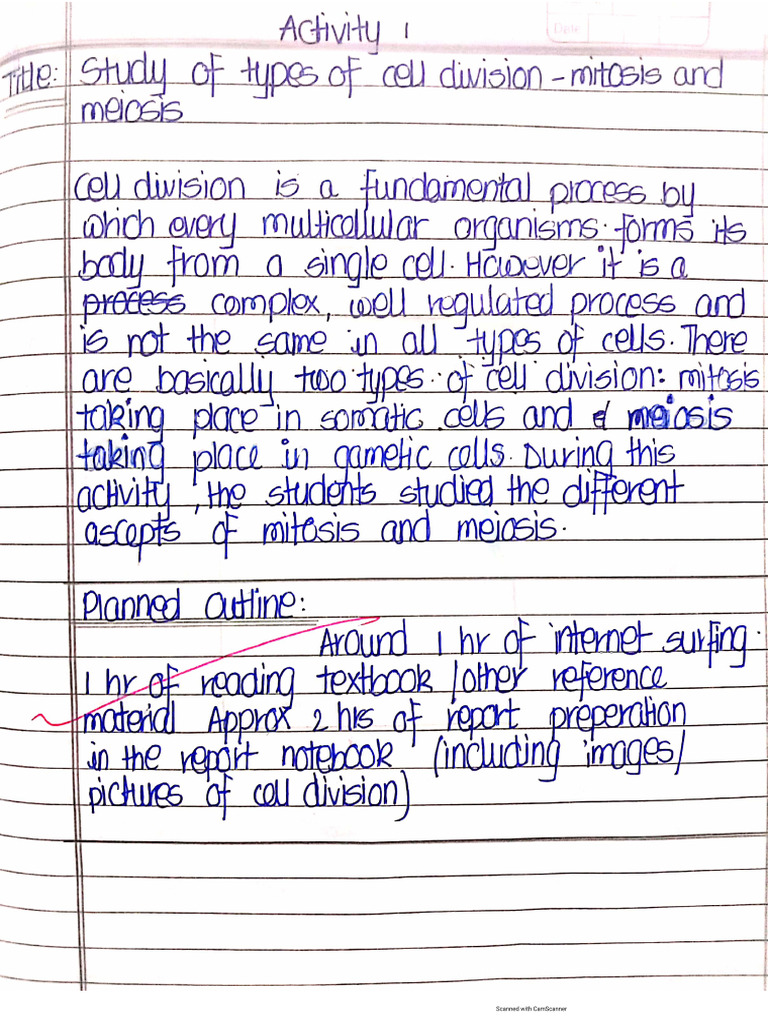 Activity 1
Date
Title: Study of types of cell division - mitosis and
meiosis
Cell division is a fundamental process by
which every multicellular organisms forms its
body from a single cell. However it is a
process complex, well regulated process and
is not the same in all types of cells. There
are basically two types of cell division: mitosis
taking place in somatic cells and meiosis
taking place in gametic cells. During this
activity, the students studied the different
ascepts of mitosis and meiosis.
Planned outline:
Around 1 hr of internet surfing.
1 hr of reading textbook /other reference
material Approx 2 hrs of report preperation
in the report notebook (including images/
pictures of cell division)
Scanned with CamScanner